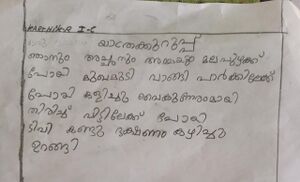 KARTHIKA I-C
യാത്രക്കുറുപ്പ്
ഞാനും അച്ഛനും അമ്മയും മലമ്പുഴക്ക്
പോയി കുപ്പകുടി വാങ്ങി പാർക്കിലേക്ക്
പോയി കളിച്ചു വൈകുന്നരുമായി
തിരിച്ച് വീട്ടിലേക്ക് പോയി
ടിവി കണ്ടു ഭക്ഷണം കഴിച്ചു
ഉറങ്ങി